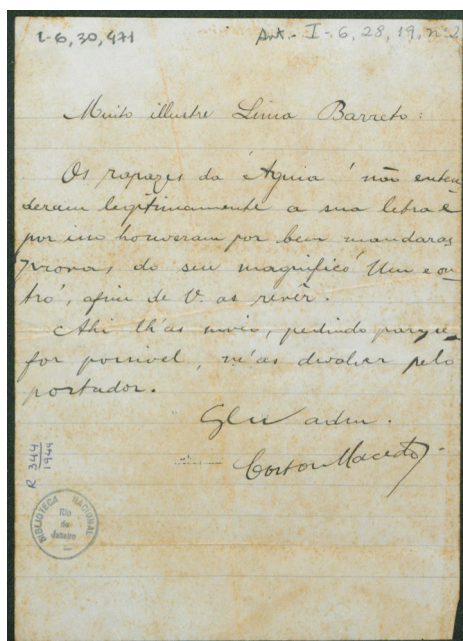 I-6,30,471
Ant. - I-6, 28, 19, nº 2
Muito illustre Lima Barreto:
Os rapazes da 'Aguia' não enten
deram legitimamente a sua letra e
por isso houveram por bem mandar as
provas do seu magnifico 'Um e ou
tro', afim de V. as revêr.
Ahi lh'as envio, pedindo para, se
for possivel, m'as devolver pelo
portador.
adm.
R 344
1949
BIBLIOTECA NACIONAL
Rio
de
Janeiro